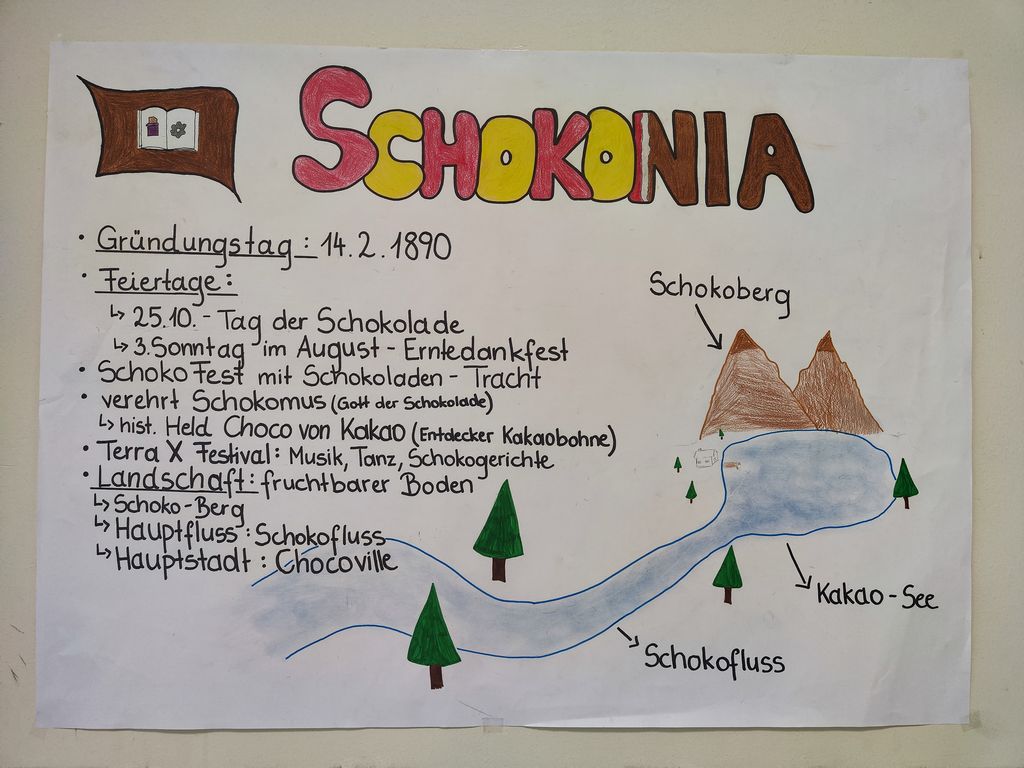 SCHOKONIA
• Gründungstag: 14.2.1890
• Feiertage:
↳ 25.10. - Tag der Schokolade
↳ 3. Sonntag im August - Erntedankfest
• Schoko Fest mit Schokoladen - Tracht
• verehrt Schokomus (Gott der Schokolade)
↳ hist. Held Choco von Kakao (Entdecker Kakaobohne)
• Terra X Festival: Musik, Tanz, Schokogerichte
• Landschaft: fruchtbarer Boden
↳ Schoko-Berg
↳ Hauptfluss: Schokofluss
↳ Hauptstadt: Chocoville
Schokoberg
Kakao-See
Schokofluss